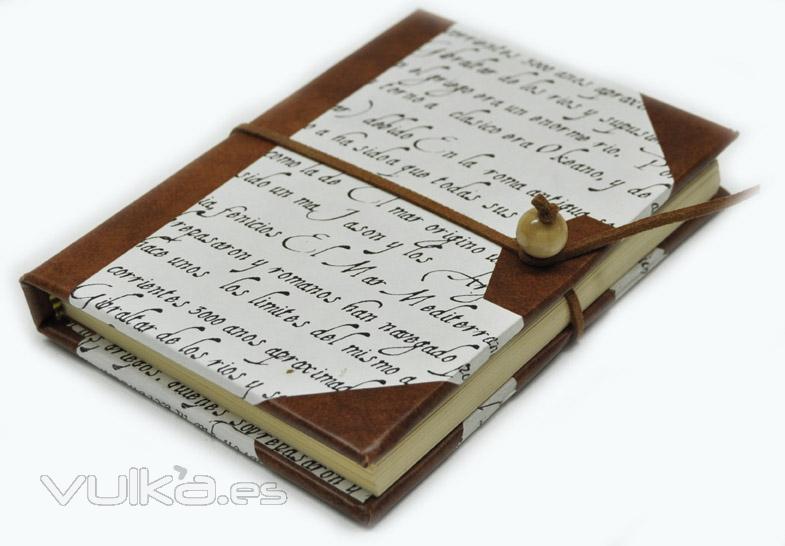 corrientes 3000 anos aproxi
Gibraltar de los rios y sugusu
n el griego era un enorme rio. Po
torno a clasico era Okeano, y de
ar) debido En la roma antigua
o a ha sidoa que todas sus
como la de El mar origino u
sido un ma Jason y los Arg
ia, fenicios El Mar Mediterran
repasaron y romanos han navegado
hace unos los limites del mismo a
corrientes 3000 anos aproximad
Gibraltar de los rios y s
os griegos, quienes sobrepasaron y
vulka.es